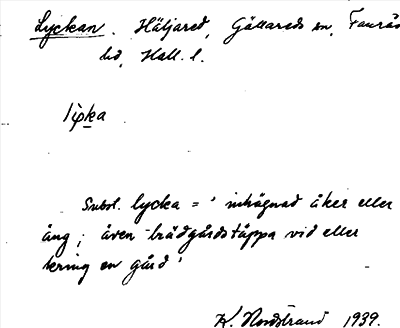 Lyckan. Häljared, Gällareds sn, Faurås
hd, Hall. l.
Subst. lycka = ' inhägnad åker eller
äng; även trädgårdstäppa vid eller
kring en gård'
K. Nordstrand 1939.